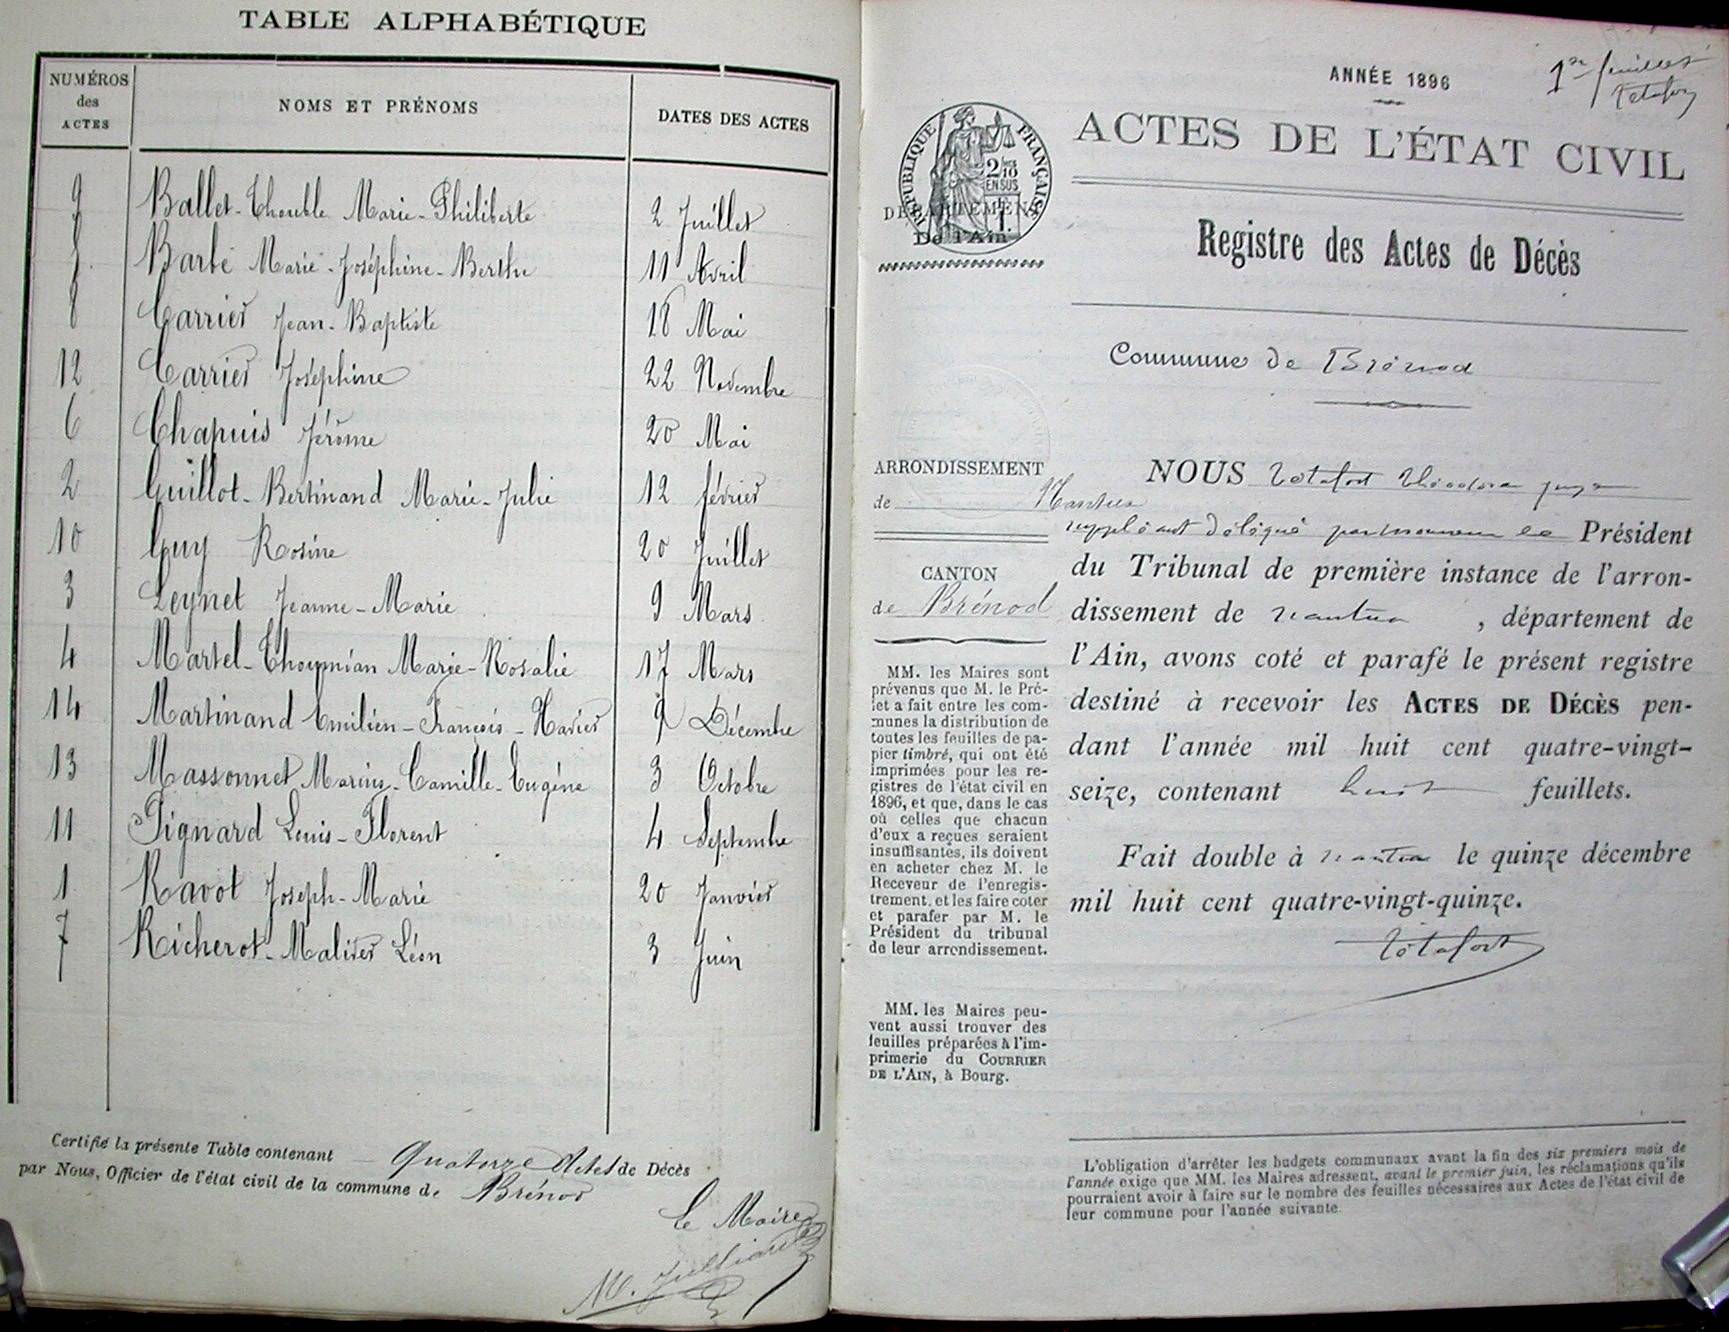 TABLE ALPHABÉTIQUE
NUMÉROS
des
ACTES
NOMS ET PRÉNOMS
DATES DES ACTES
9 Ballet-Chouble Marie-Philiberte 2 Juillet
5 Barbe Marie-Joséphine-Berthe 11 Avril
8 Carrier Jean-Baptiste 18 Mai
12 Carrier Joséphine 22 Novembre
6 Chapuis Jérôme 20 Mai
2 Guillot-Bertinand Marie-Julie 12 février
10 Guy Rosine 20 Juillet
3 Leynet Jeanne-Marie 9 Mars
4 Martel-Thoumian Marie-Rosalie 17 Mars
14 Martinand Emilien-François-Xavier 9 Décembre
13 Massonnet Marius-Camille-Eugène 3 Octobre
11 Pignard Louis-Florent 4 Septembre
1 Ravot Joseph-Marie 20 Janvier
7 Richerot-Maliver Léon 3 Juin
Certifié la présente Table contenant Quatorze Actes de Décès
par Nous, Officier de l'état civil de la commune de Brénod
Le Maire
1er feuillet
Tétafort
ANNÉE 1896
ACTES DE L'ÉTAT CIVIL
RÉPUBLIQUE FRANÇAISE
2/10
EN SUS
DÉPARTEMENT
De l'Ain
Registre des Actes de Décès
Commune de Brénod
ARRONDISSEMENT
de Nantua
CANTON
de Brénod
MM. les Maires sont
prévenus que M. le Pré-
fet a fait entre les com-
munes la distribution de
toutes les feuilles de pa-
pier timbré, qui ont été
imprimées pour les re-
gistres de l'état civil en
1896, et que, dans le cas
où celles que chacun
d'eux a reçues seraient
insuffisantes, ils doivent
en acheter chez M. le
Receveur de l'enregis-
trement, et les faire coter
et parafer par M. le
Président du tribunal
de leur arrondissement.
MM. les Maires peu-
vent aussi trouver des
feuilles préparées à l'im-
primerie du COURRIER
DE L'AIN, à Bourg.
NOUS Tétafort Théodore juge
suppléant délégué par monsieur le Président
du Tribunal de première instance de l'arron-
dissement de nantua , département de
l'Ain, avons coté et parafé le présent registre
destiné à recevoir les ACTES DE DÉCÈS pen-
dant l'année mil huit cent quatre-vingt-
seize, contenant huit feuillets.
Fait double à nantua le quinze décembre
mil huit cent quatre-vingt-quinze.
Tétafort
L'obligation d'arrêter les budgets communaux avant la fin des six premiers mois de
l'année exige que MM. les Maires adressent, avant le premier juin, les réclamations qu'ils
pourraient avoir à faire sur le nombre des feuilles nécessaires aux Actes de l'état civil de
leur commune pour l'année suivante.